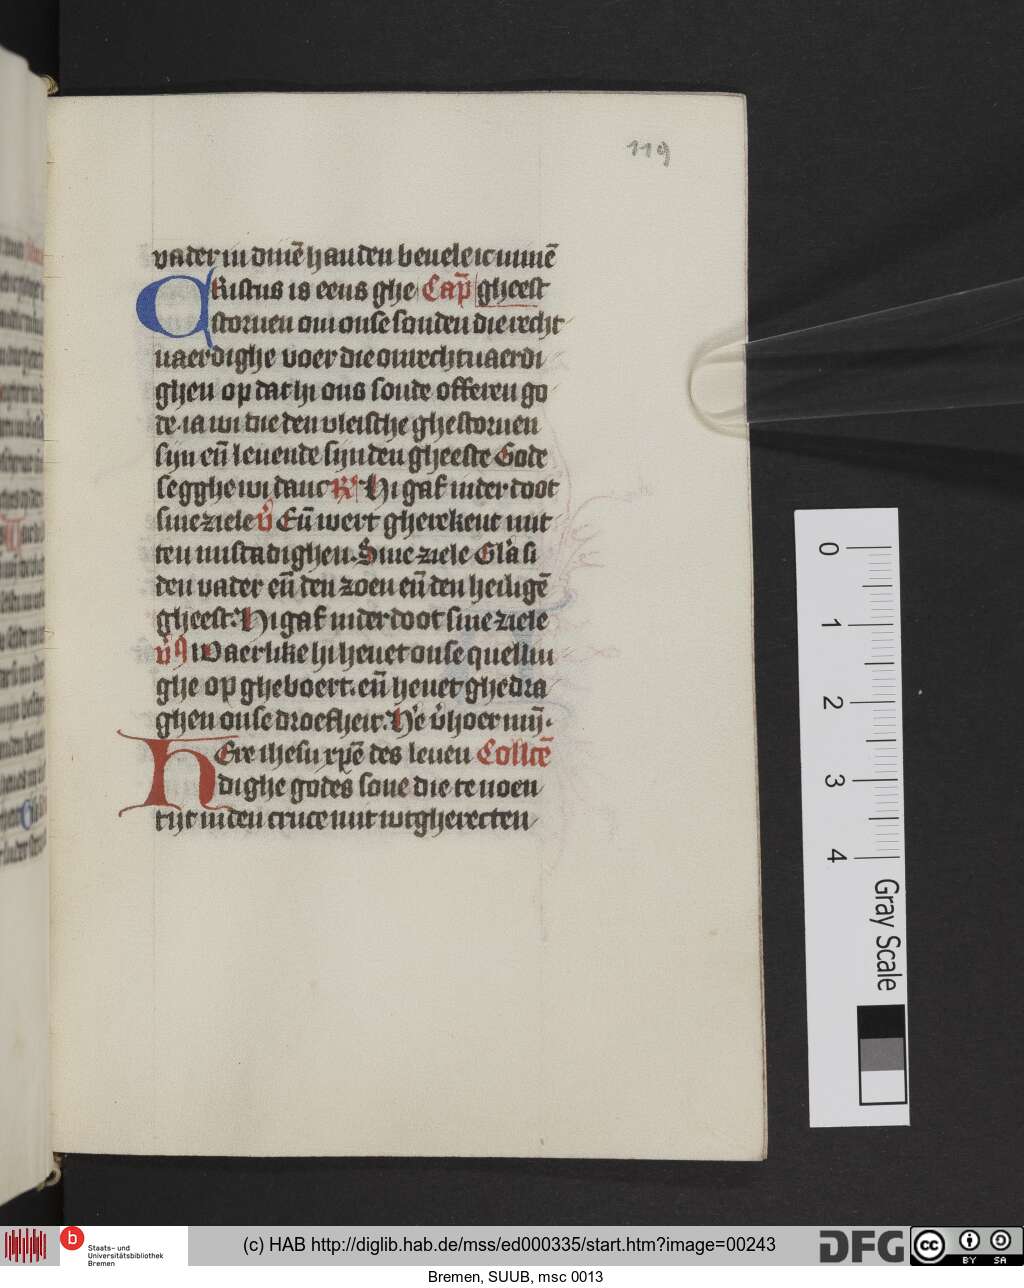 119
vader in dinē handen beuele ic minē
CRistus is eens ghe Cap̄ gheest
storuen om onse sonden die recht
uaerdighe voer die onrechtuaerdi
ghen op dat hi ons soude offeren go
de. ia wi die den vleische ghestoruen
sijn eñ leuende sijn den gheeste Gode
segghe wi danc R Hi gaf inder doot
sine ziele v̉ Eñ wert gherekent mit
ten misdadighen. Sine ziele Glā si
den vader eñ den zoen eñ den heiligē
gheest. Hi gaf inder doot sine ziele
v̉s Waerlike hi heuet onse quellin
ghe op gheboert. eñ heuet ghedra
ghen onse droefheit. He v̉hoer mij.
HEre ihesu xp̄e des leuen Collcē
dighe godes sone die te noen
tijt inden cruce mit wtgherecten
0
1
2
3
4
Gray Scale
b
Staats- und
Universitätsbibliothek
Bremen
(c) HAB http://diglib.hab.de/mss/ed000335/start.htm?image=00243
DFG
cc
BY SA
Bremen, SUUB, msc 0013